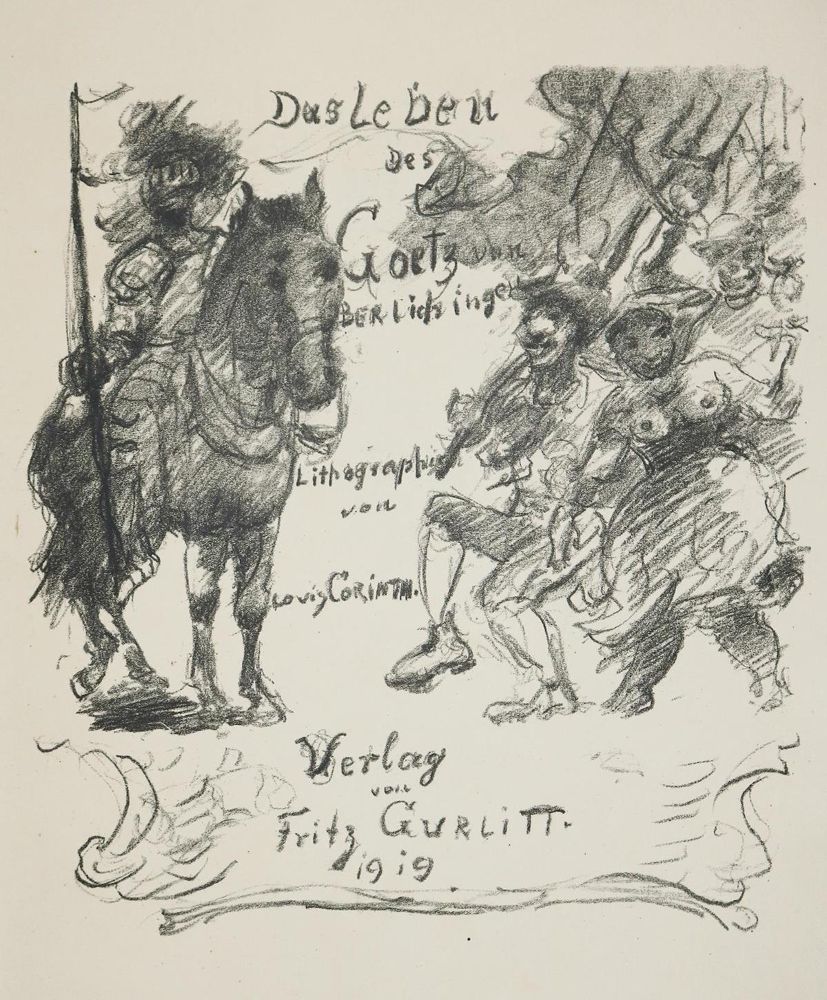 Das Leben
Des
Goetz von
BERlichingen
Lithographien
von
Lovis CORINTH.
Verlag
von
Fritz GURLITT.
1919